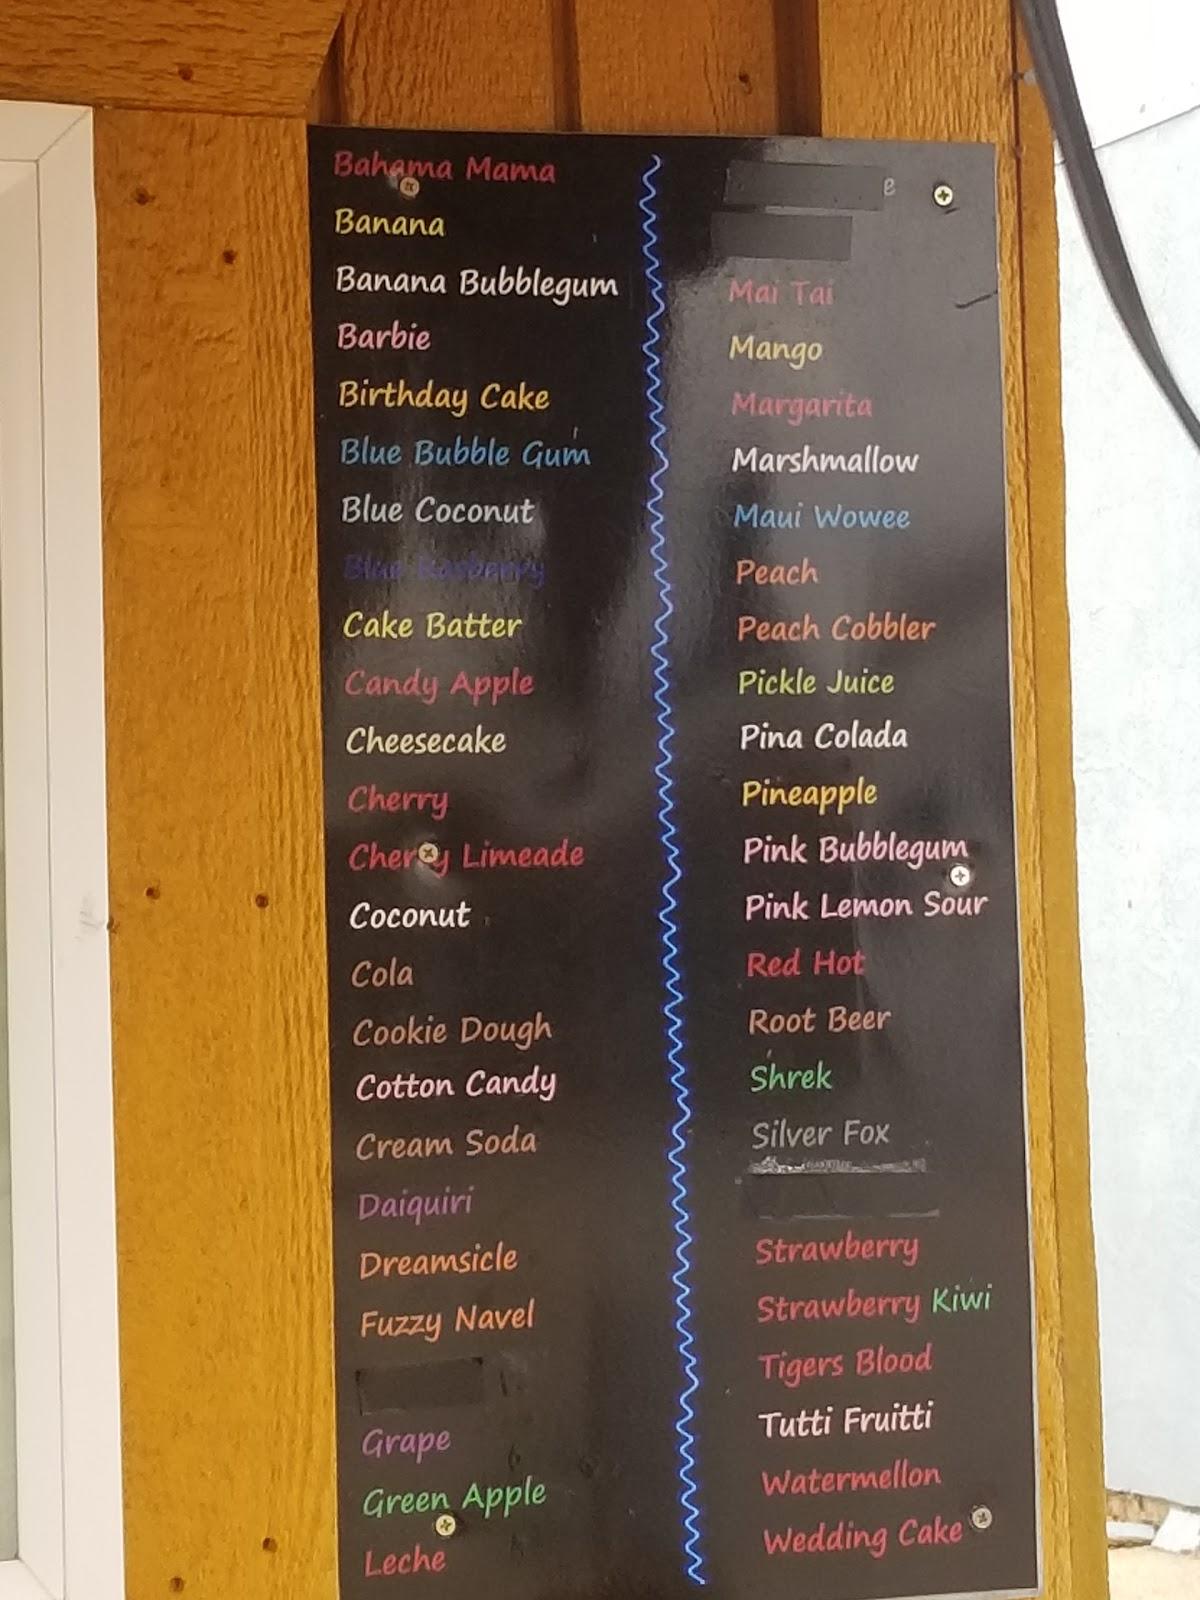 Bahama Mama
Banana
Banana Bubblegum
Barbie
Birthday Cake
Blue Bubble Gum
Blue Coconut
Blue Rasberry
Cake Batter
Candy Apple
Cheesecake
Cherry
Cherry Limeade
Coconut
Cola
Cookie Dough
Cotton Candy
Cream Soda
Daiquiri
Dreamsicle
Fuzzy Navel
Grape
Green Apple
Leche
e
Mai Tai
Mango
Margarita
Marshmallow
Maui Wowee
Peach
Peach Cobbler
Pickle Juice
Pina Colada
Pineapple
Pink Bubblegum
Pink Lemon Sour
Red Hot
Root Beer
Shrek
Silver Fox
Strawberry
Strawberry Kiwi
Tigers Blood
Tutti Fruitti
Watermellon
Wedding Cake